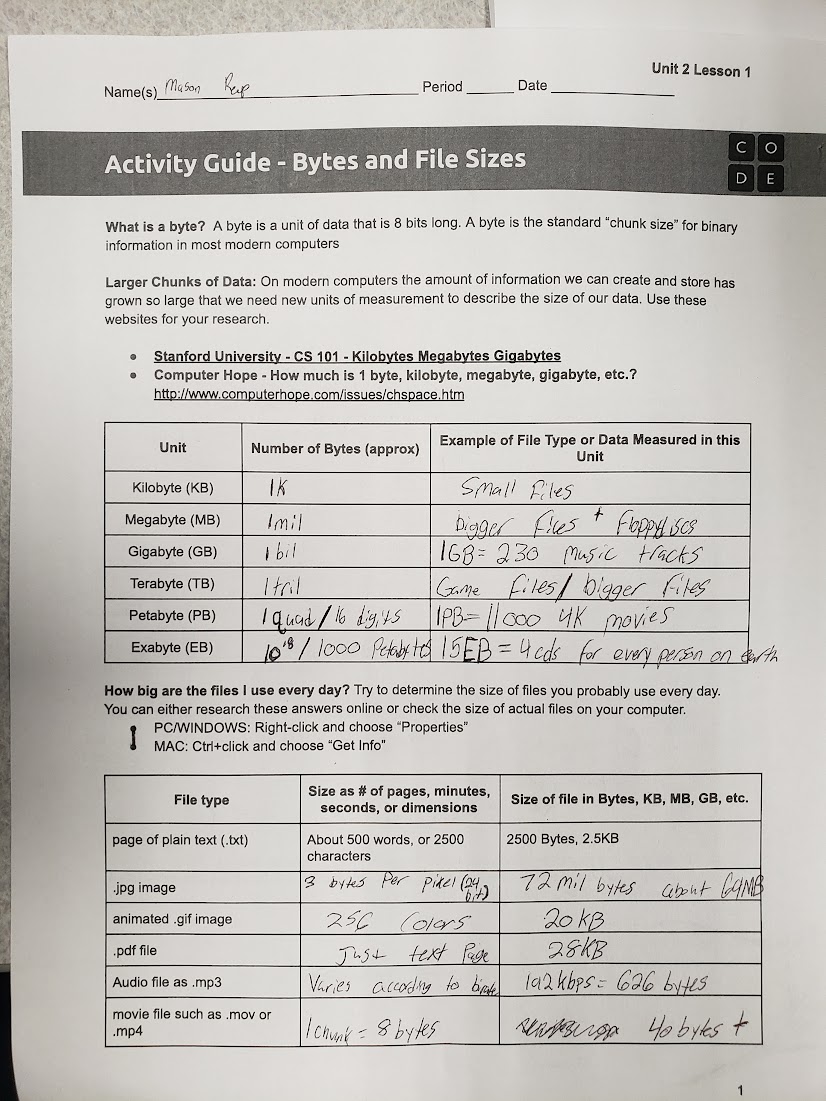 Unit 2 Lesson 1
Name(s) Mason Period Date
Activity Guide - Bytes and File Sizes
C O
D E
What is a byte? A byte is a unit of data that is 8 bits long. A byte is the standard “chunk size” for binary
information in most modern computers
Larger Chunks of Data: On modern computers the amount of information we can create and store has
grown so large that we need new units of measurement to describe the size of our data. Use these
websites for your research.
● Stanford University - CS 101 - Kilobytes Megabytes Gigabytes
● Computer Hope - How much is 1 byte, kilobyte, megabyte, gigabyte, etc.?
http://www.computerhope.com/issues/chspace.htm
Unit Number of Bytes (approx) Example of File Type or Data Measured in this
Unit
Kilobyte (KB) 1K Small files
Megabyte (MB) 1mil bigger files + Floppydiscs
Gigabyte (GB) 1 bil 1GB= 230 music tracks
Terabyte (TB) 1tril Game files/ bigger files
Petabyte (PB) 1quad/16 digits 1PB= 11000 4K movies
Exabyte (EB) 10^18/ 1000 Petabytes 15EB = 4cds for every person on earth
How big are the files I use every day? Try to determine the size of files you probably use every day.
You can either research these answers online or check the size of actual files on your computer.
PC/WINDOWS: Right-click and choose “Properties”
MAC: Ctrl+click and choose “Get Info”
File type Size as # of pages, minutes,
seconds, or dimensions Size of file in Bytes, KB, MB, GB, etc.
page of plain text (.txt) About 500 words, or 2500
characters 2500 Bytes, 2.5KB
.jpg image 3 bytes Per Pixel (24
bit) 72 mil bytes about 69MB
animated .gif image 256 Colors 20KB
.pdf file Just text Page 28KB
Audio file as .mp3 Varies according to 192kbps= 626 bytes
movie file such as .mov or
.mp4 1 chunk = 8 bytes 40 bytes +
1